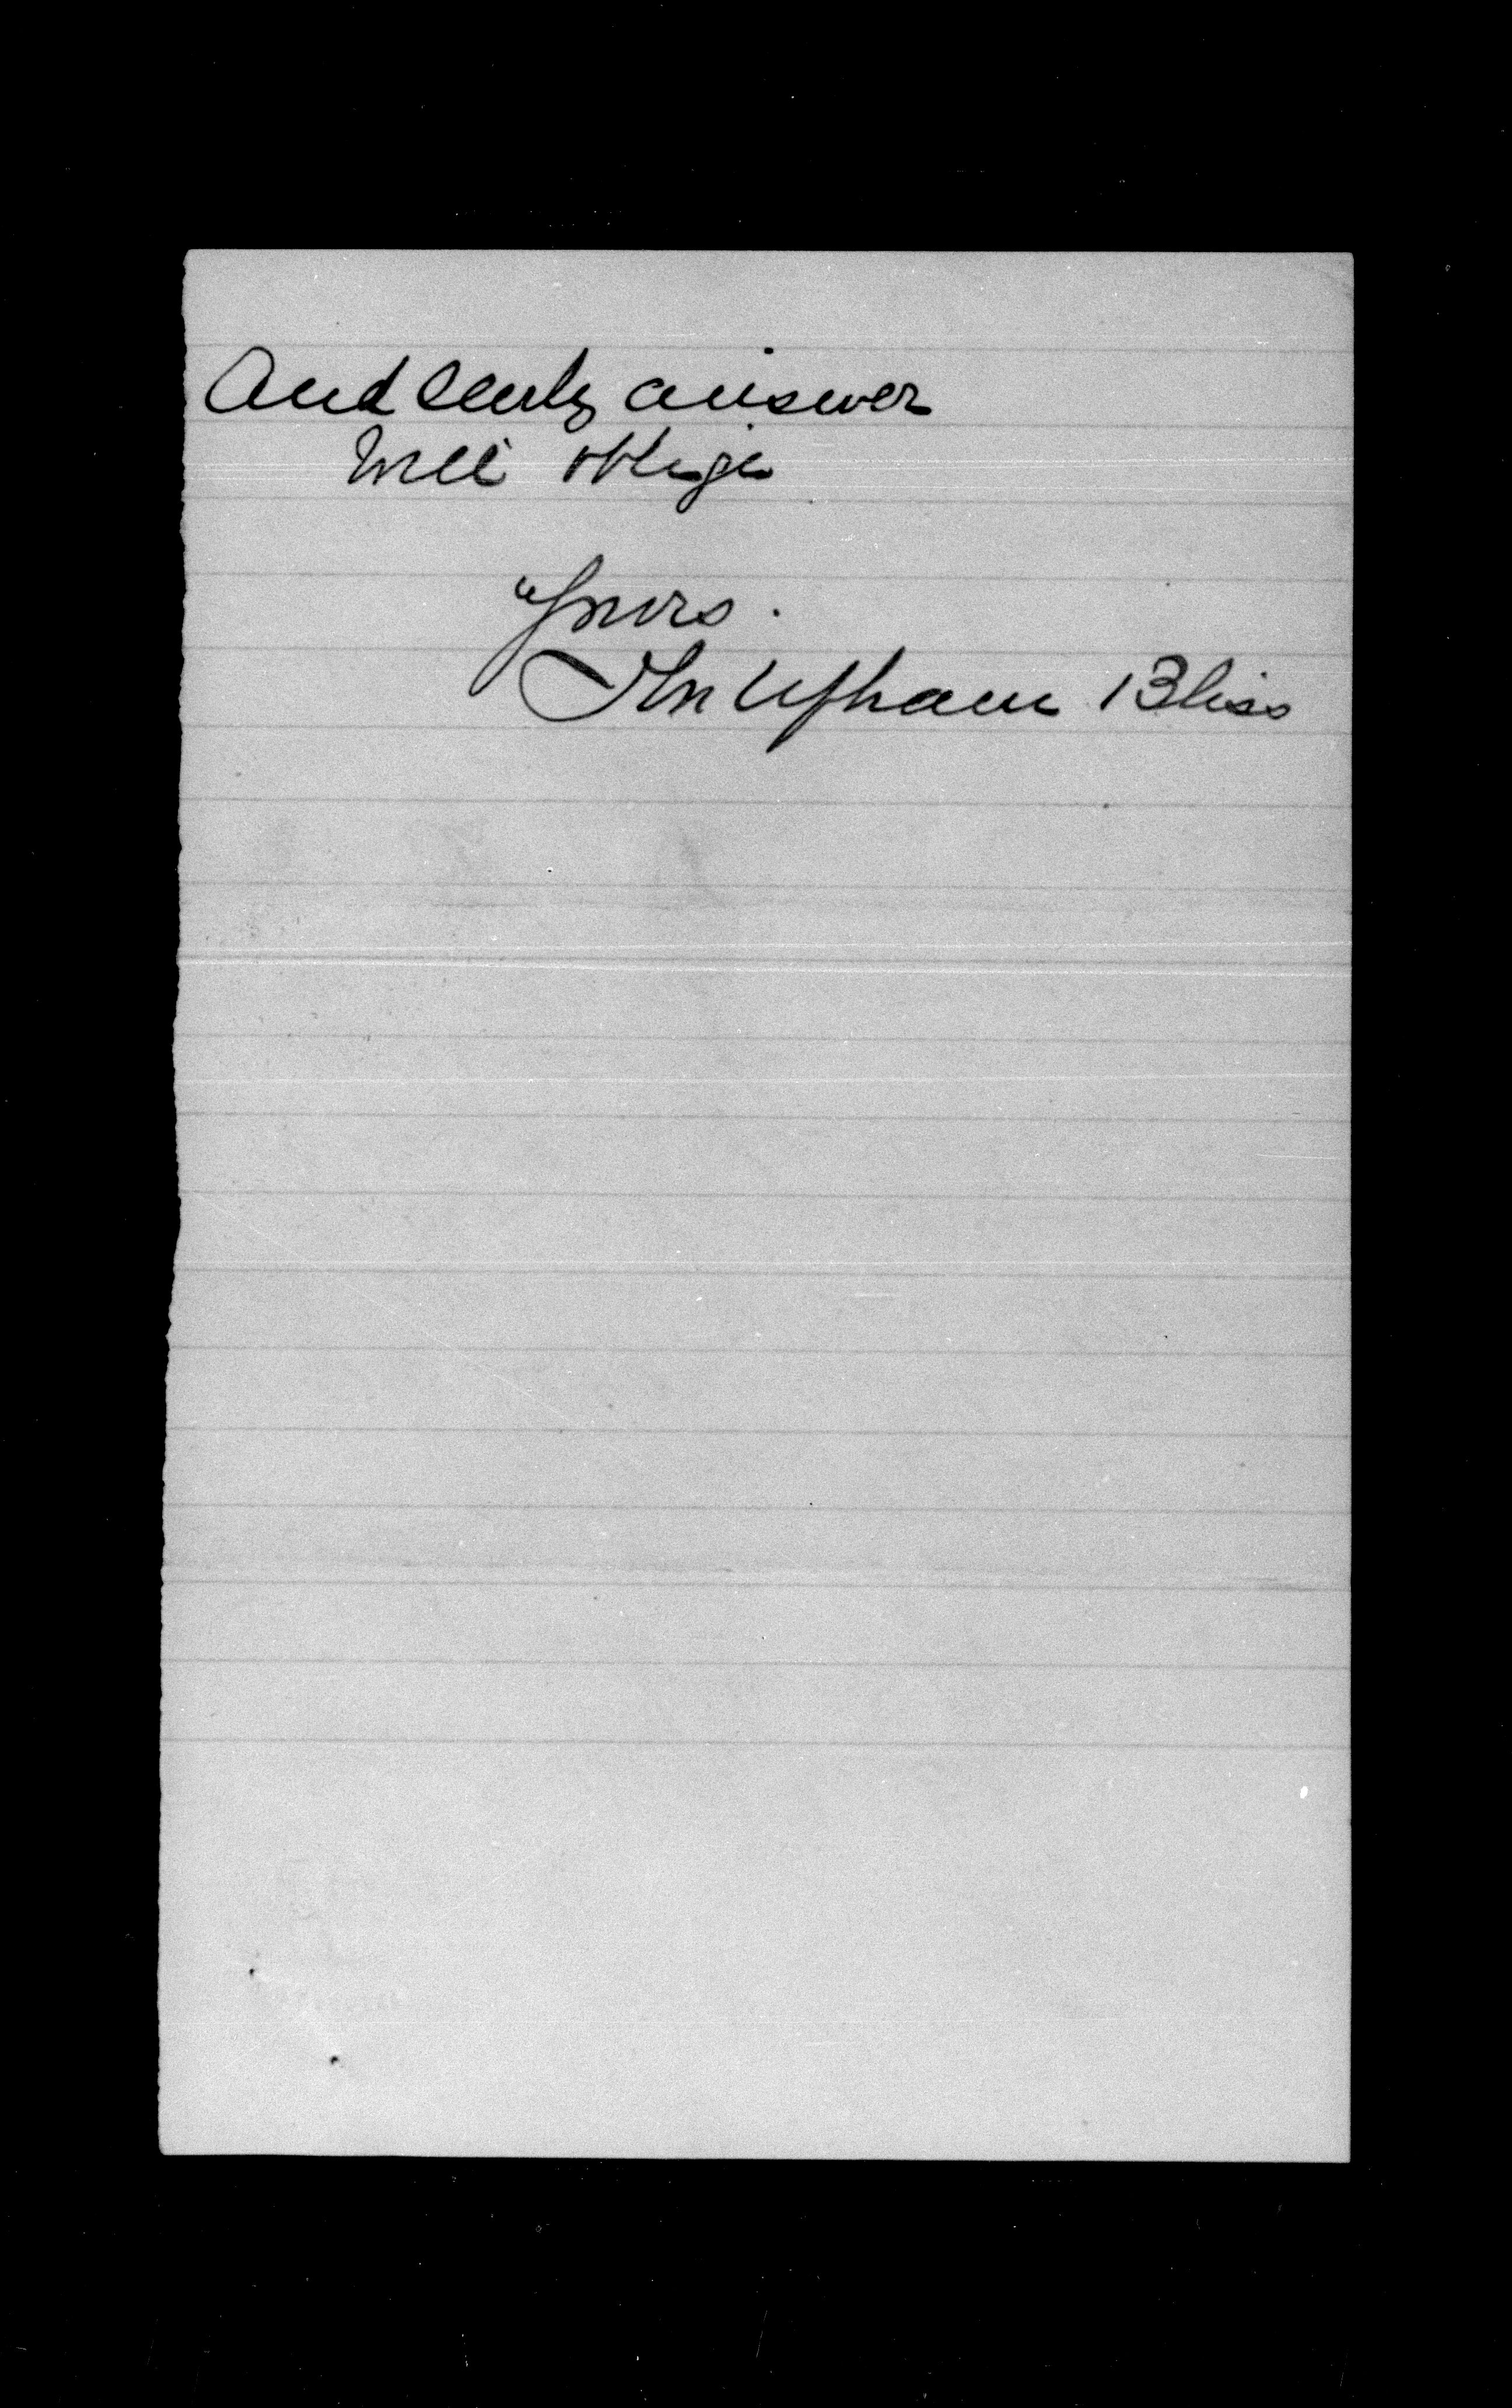 And early answer
will oblige
Yours.
Jn Upham Bliss